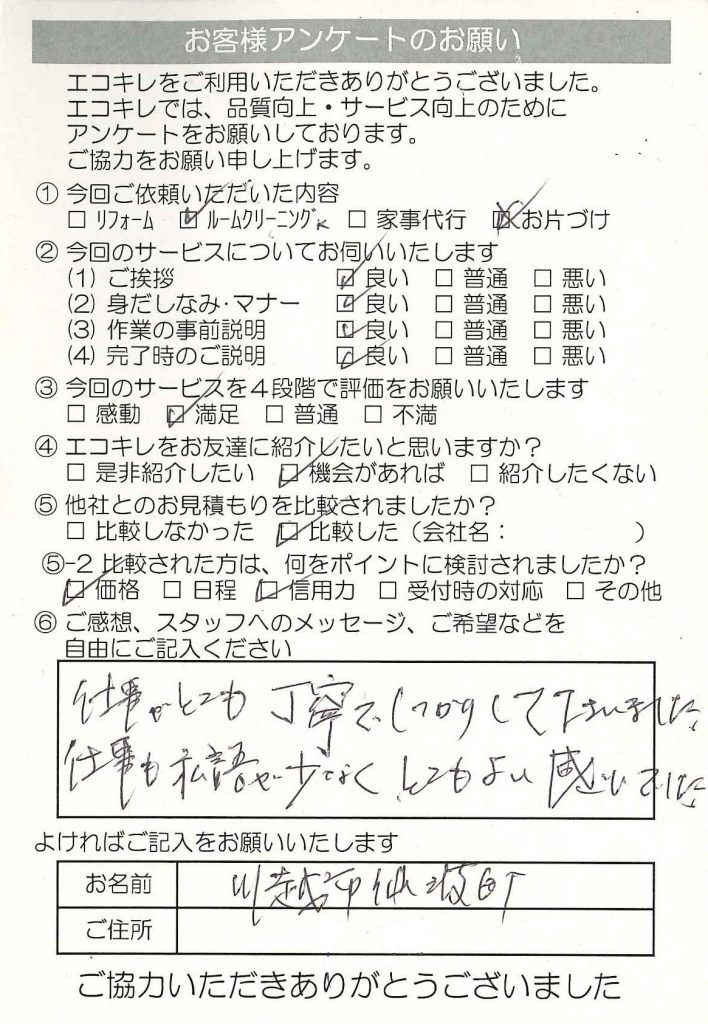 お客様アンケートのお願い
エコキレをご利用いただきありがとうございました。
エコキレでは、品質向上・サービス向上のために
アンケートをお願いしております。
ご協力をお願い申し上げます。
① 今回ご依頼いただいた内容
□ リフォーム ☑ ルームクリーニング □ 家事代行 ☑ お片づけ
② 今回のサービスについてお伺いいたします
(1) ご挨拶 ☑ 良い □ 普通 □ 悪い
(2) 身だしなみ・マナー ☑ 良い □ 普通 □ 悪い
(3) 作業の事前説明 ☑ 良い □ 普通 □ 悪い
(4) 完了時のご説明 ☑ 良い □ 普通 □ 悪い
③ 今回のサービスを４段階で評価をお願いいたします
□ 感動 ☑ 満足 □ 普通 □ 不満
④ エコキレをお友達に紹介したいと思いますか？
□ 是非紹介したい ☑ 機会があれば □ 紹介したくない
⑤ 他社とのお見積もりを比較されましたか？
□ 比較しなかった ☑ 比較した（会社名： ）
⑤-2 比較された方は、何をポイントに検討されましたか？
☑ 価格 □ 日程 ☑ 信用力 □ 受付時の対応 □ その他
⑥ ご感想、スタッフへのメッセージ、ご希望などを
自由にご記入ください
仕事がとても丁寧でしっかりして下さいました。
仕事も私語が少なくとてもよい感じでした。
よければご記入をお願いいたします
お名前 川越市仙波町
ご住所
ご協力いただきありがとうございました